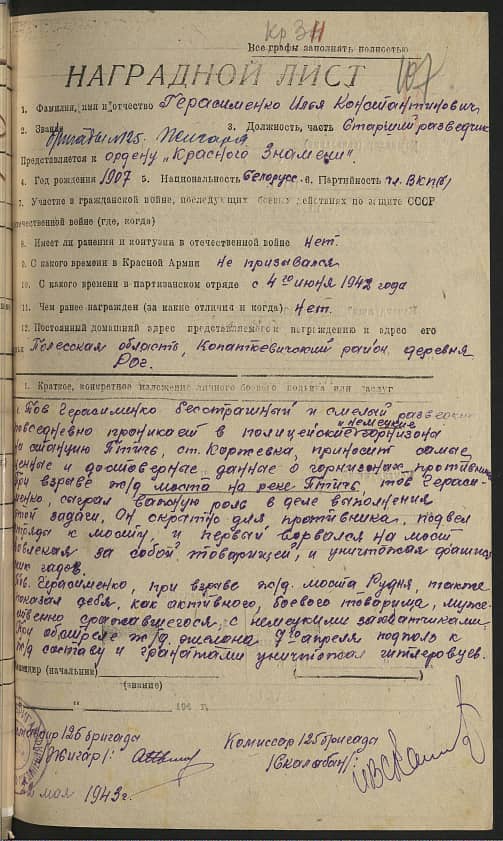 Кр ЗН
Все графы заполнять полностью
НАГРАДНОЙ ЛИСТ
1. Фамилия, имя и отчество Герасименко Илья Константинович
2. Звание 3. Должность, часть Старший разведчик
бригады №125. Жигаря
Представляется к ордену „Красного Знамени".
4. Год рождения 1907 5. Национальность белорусс. 6. Партийность чл. ВКП(б)
7. Участие в гражданской войне, последующих боевых действиях по защите СССР
отечественной войне (где, когда)
8. Имеет ли ранения и контузии в отечественной войне Нет.
9. С какого времени в Красной Армии не призывался
10. С какого времени в партизанском отряде с 4го июня 1942 года
11. Чем ранее награжден (за какие отличия и когда) Нет.
12. Постоянный домашний адрес представляемого к награждению и адрес его
Полесская область, Копаткевичский район деревня
Рог.
1. Краткое, конкретное изложение личного боевого подвига или заслуг
Тов Герасименко бесстрашный и смелый разведчик
повседневно проникает в полицейские и немецкие гарнизоны
на станцию Птичь, ст. Коржевка, приносит самые
ценные и достоверные данные о горнизонах противника
При взрыве ж/д моста на реке Птичь, тов Гераси-
менко, сыграл важную роль в деле выполнения
этой задачи. Он скратно для противника, подвел
отряд к мосту, и первый ворвался на мост
товлекая за собой товарищей, и уничтожал фашист
ких гадов.
Тов. Герасименко, при взрыве ж/д. моста Рудня, также
показал себя, как активного, боевого товарища, муже-
ственно сражавшегося, с немецкими захватчиками.
При обстреле ж/д. эшелона 7го апреля подполз к
ж/д составу и гранатами уничтожал гитлеровцев.
Командир (начальник)
(звание)
" " 194 г.
Командир 125 бригада
/Жигарь/:
Комиссар 125 бригада
/Скалабан/:
2 мая 1943г.